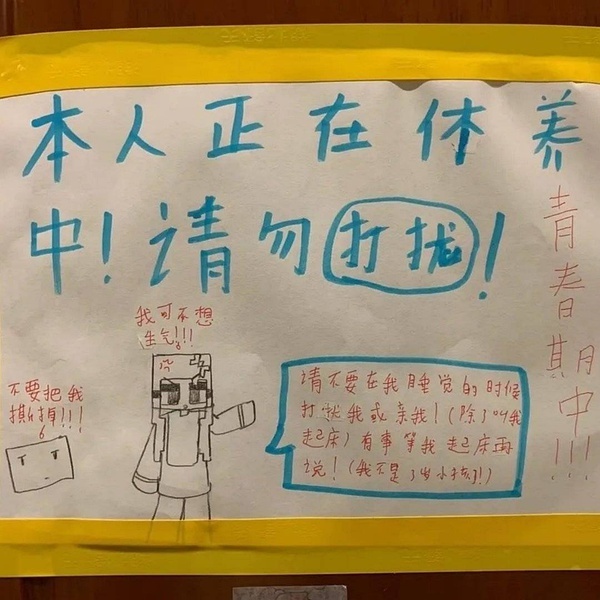 本人正在休养
中!请勿打扰!
青春期中!!!
我可不想
生气!!!
不要把我
撕掉!!!
请不要在我睡觉的时候
打扰我或亲我!(除了叫我
起床)有事等我起床再
说!(我不是3岁小孩了!)